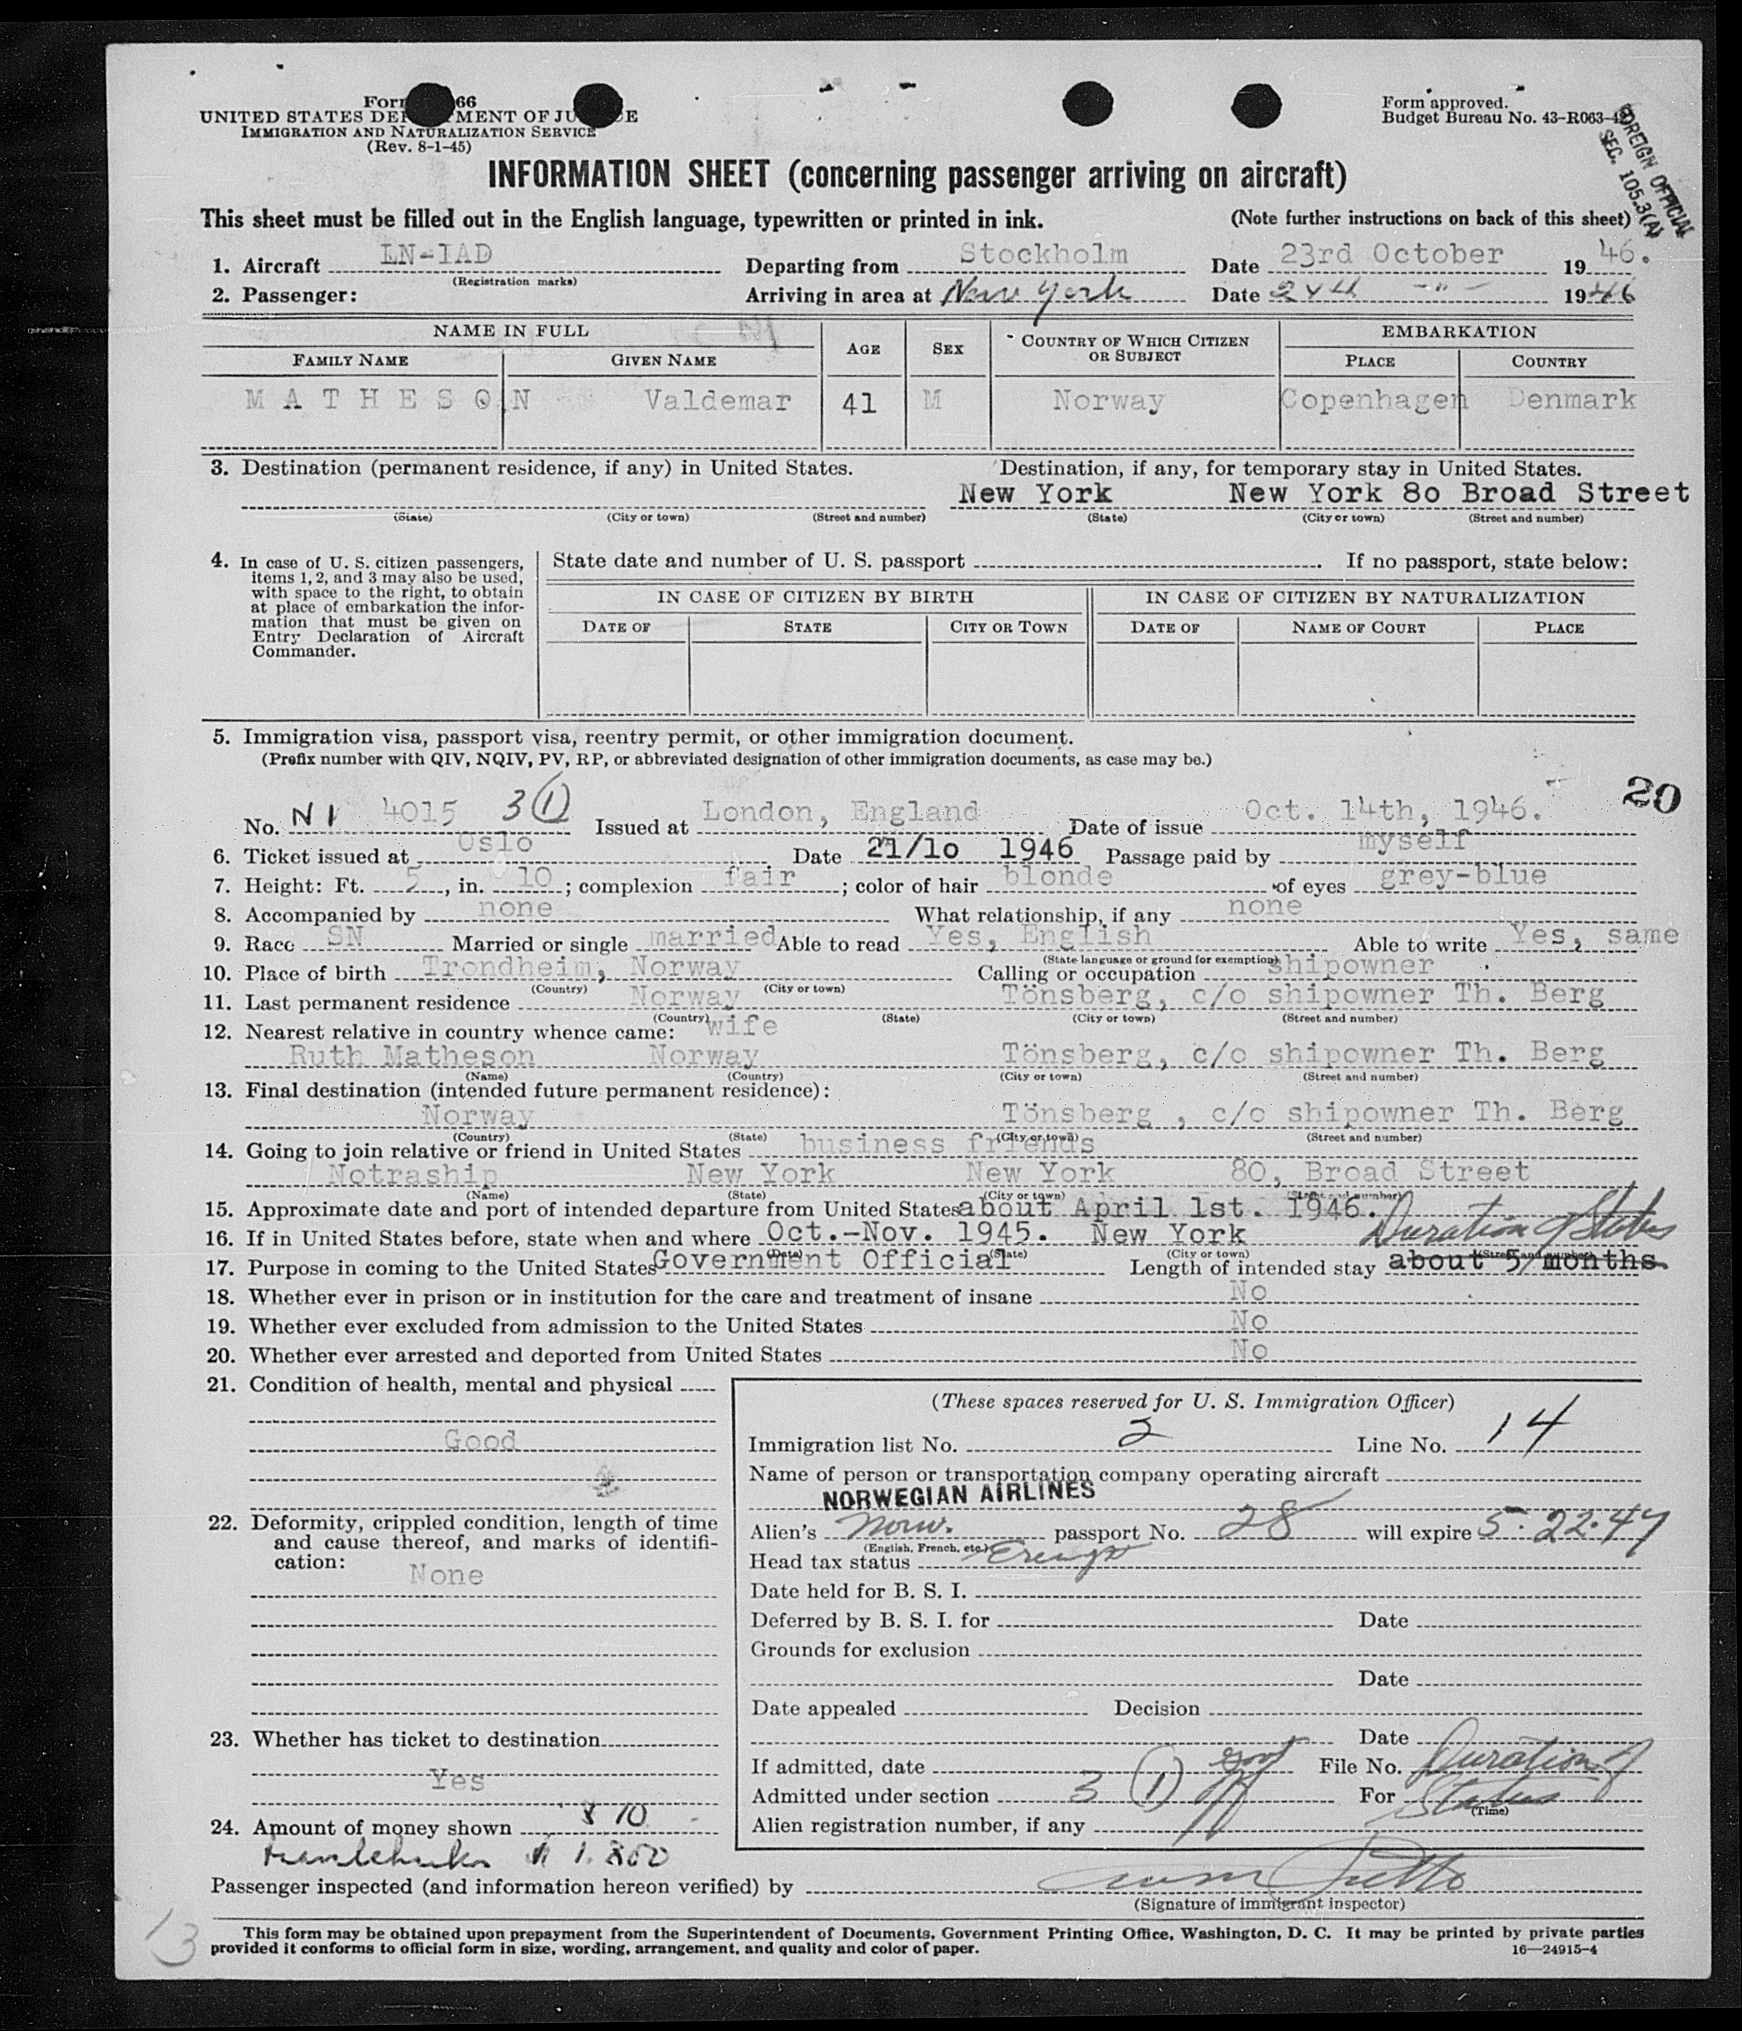 Form 66
UNITED STATES DEPARTMENT OF JUSTICE
IMMIGRATION AND NATURALIZATION SERVICE
(Rev. 8-1-45)
Form approved.
Budget Bureau No. 43-R063-42
FOREIGN OFFICIAL
SEC. 105.3(A)
INFORMATION SHEET (concerning passenger arriving on aircraft)
This sheet must be filled out in the English language, typewritten or printed in ink. (Note further instructions on back of this sheet)
1. Aircraft LN-IAD Departing from Stockholm Date 23rd October 1946.
(Registration marks)
2. Passenger: Arriving in area at New York Date 24th -"- 1946
NAME IN FULL AGE SEX COUNTRY OF WHICH CITIZEN OR SUBJECT EMBARKATION
FAMILY NAME GIVEN NAME PLACE COUNTRY
MATHESON Valdemar 41 M Norway Copenhagen Denmark
3. Destination (permanent residence, if any) in United States. Destination, if any, for temporary stay in United States.
New York New York 80 Broad Street
(State) (City or town) (Street and number) (State) (City or town) (Street and number)
4. In case of U. S. citizen passengers, items 1, 2, and 3 may also be used, with space to the right, to obtain at place of embarkation the information that must be given on Entry Declaration of Aircraft Commander.
State date and number of U. S. passport If no passport, state below:
IN CASE OF CITIZEN BY BIRTH IN CASE OF CITIZEN BY NATURALIZATION
DATE OF STATE CITY OR TOWN DATE OF NAME OF COURT PLACE
5. Immigration visa, passport visa, reentry permit, or other immigration document.
(Prefix number with QIV, NQIV, PV, RP, or abbreviated designation of other immigration documents, as case may be.)
20
No. NI 4015 3(1) Issued at London, England Date of issue Oct. 14th, 1946.
6. Ticket issued at Oslo Date 21/10 1946 Passage paid by myself
7. Height: Ft. 5, in. 10; complexion fair; color of hair blonde of eyes grey-blue
8. Accompanied by none What relationship, if any none
9. Race SN Married or single married Able to read Yes, English Able to write Yes, same
(State language or ground for exemption)
10. Place of birth Trondheim, Norway Calling or occupation shipowner
(Country) (City or town)
11. Last permanent residence Norway Tönsberg, c/o shipowner Th. Berg
(Country) (State) (City or town) (Street and number)
12. Nearest relative in country whence came: wife
Ruth Matheson Norway Tönsberg, c/o shipowner Th. Berg
(Name) (Country) (City or town) (Street and number)
13. Final destination (intended future permanent residence):
Norway Tönsberg , c/o shipowner Th. Berg
(Country) (State) (City or town) (Street and number)
14. Going to join relative or friend in United States business friends
Notraship New York New York 80, Broad Street
(Name) (State) (City or town) (Street and number)
15. Approximate date and port of intended departure from United States about April 1st. 1946. Duration of Status
16. If in United States before, state when and where Oct.-Nov. 1945. New York
(Date) (State) (City or town) (Street and number)
17. Purpose in coming to the United States Government Official Length of intended stay about 5 months.
18. Whether ever in prison or in institution for the care and treatment of insane No
19. Whether ever excluded from admission to the United States No
20. Whether ever arrested and deported from United States No
21. Condition of health, mental and physical
Good
22. Deformity, crippled condition, length of time and cause thereof, and marks of identification:
None
23. Whether has ticket to destination
Yes
24. Amount of money shown $ 10
$ 1.800
(These spaces reserved for U. S. Immigration Officer)
Immigration list No. 2 Line No. 14
Name of person or transportation company operating aircraft
NORWEGIAN AIRLINES
Alien's Norw. passport No. 28 will expire 5.22.47
(English, French, etc.)
Head tax status Exempt
Date held for B. S. I.
Deferred by B. S. I. for Date
Grounds for exclusion
Date
Date appealed Decision
Date
If admitted, date File No.
Admitted under section 3 (1) govt off For Duration of Status
(Time)
Alien registration number, if any
Passenger inspected (and information hereon verified) by
(Signature of immigrant inspector)
13
This form may be obtained upon prepayment from the Superintendent of Documents, Government Printing Office, Washington, D. C. It may be printed by private parties
provided it conforms to official form in size, wording, arrangement, and quality and color of paper. 16—24915-4